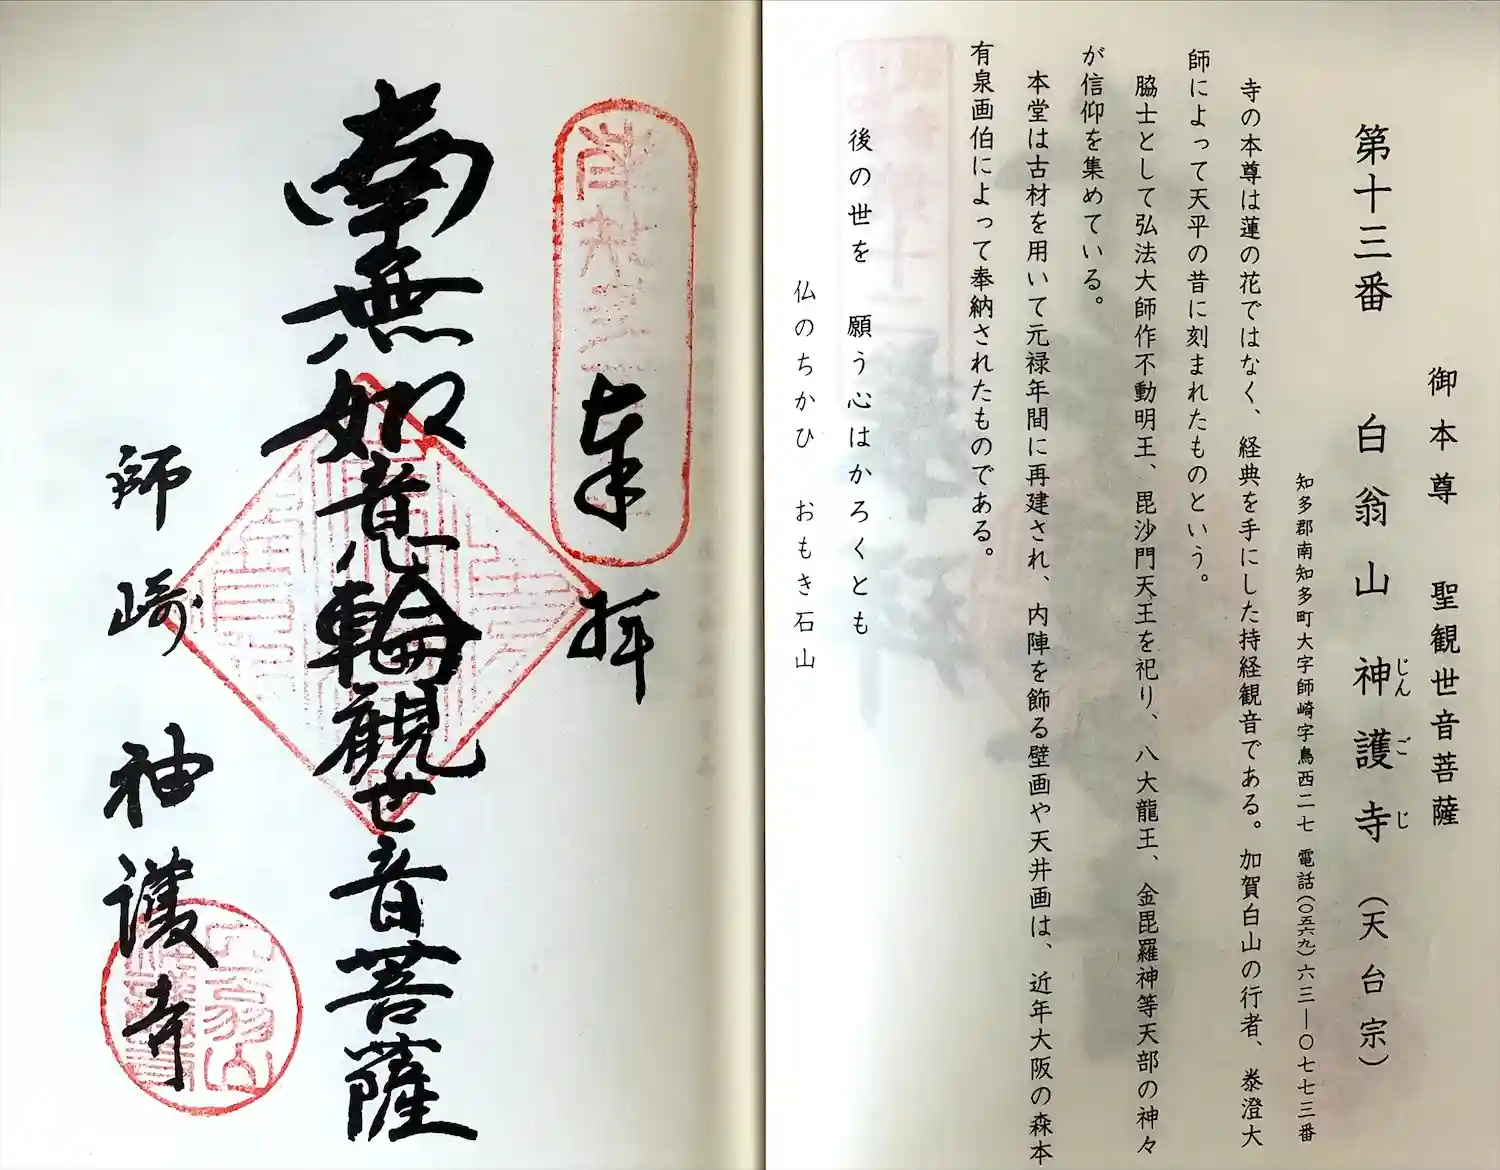 御本尊 聖観世音菩薩
第十三番 白翁山 神護寺（天台宗）
じんごじ
知多郡南知多町大字師崎字鳥西二七 電話(〇五六九)六三―〇七七三番
寺の本尊は蓮の花ではなく、経典を手にした持経観音である。加賀白山の行者、泰澄大
師によって天平の昔に刻まれたものという。
脇士として弘法大師作不動明王、毘沙門天王を祀り、八大龍王、金毘羅神等天部の神々
が信仰を集めている。
本堂は古材を用いて元禄年間に再建され、内陣を飾る壁画や天井画は、近年大阪の森本
有泉画伯によって奉納されたものである。
後の世を 願う心はかろくとも
仏のちかひ おもき石山
奉拝
南無如意輪観世音菩薩
師崎 神護寺